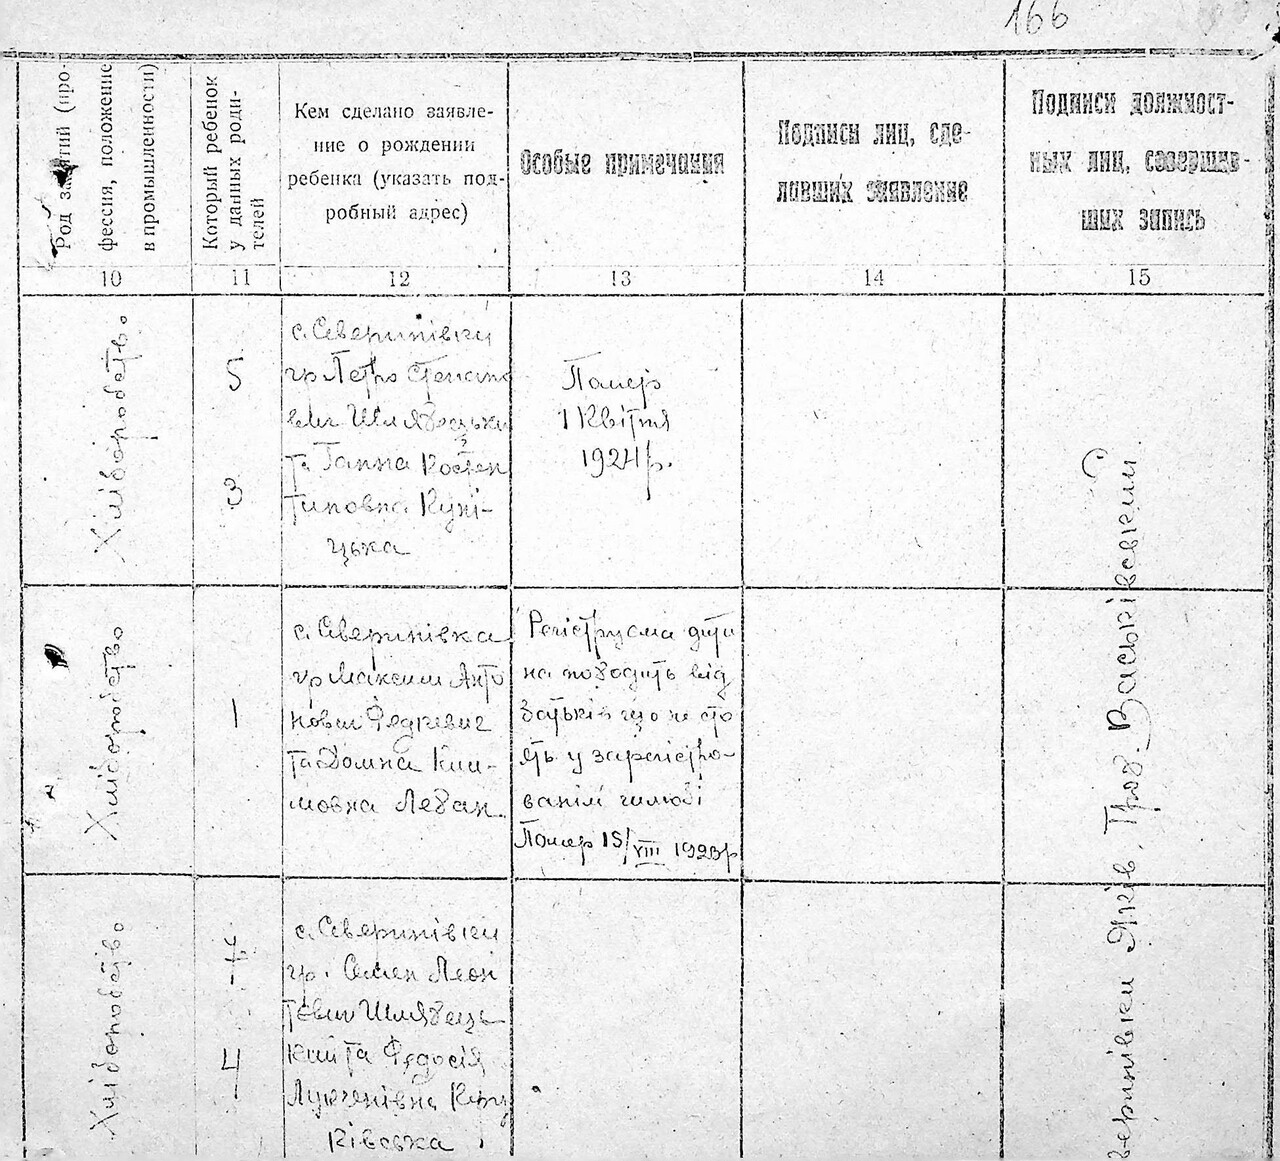 166
Род занятий (про-
фессия, положение
в промышленности)
Который ребенок
у данных роди-
телей
Кем сделано заявле-
ние о рождении
ребенка (указать под-
робный адрес)
Особые примечания
Подписи лиц, сде-
лавших заявление
Подписи должност-
ных лиц, совершив-
ших запись
10
11
12
13
14
15
Хліборобство
5
3
с. Северинівки
гр Петро Степано
вич Шлядецьки
та Ганна Костен
тиновна Куні-
цька
Помер
1 Квітня
1924 р.
Хліборобство
1
с. Северинівка
гр Максим Анто
нович Федкевич
та Домна Кли-
мовна Лебан.
Регіструєма дити
на походить від
батьків що не сто
ять у зарегістро-
ванім шлюбі
Помер 15/VIII 1923р
Хліборобство
4
с. Северинівки
гр. Семен Леон
тєвич Шлядець
кий та Федосія
ківська
веринівки Яків. Васьківський